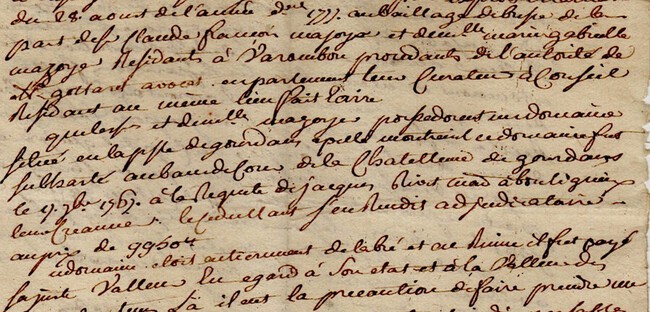 du 28. aoust de l'année dre 1777. au baillage de bresse de la
part de sr Claude francois mazoyer et demlle marie gabrielle
mazoyer Residants à Varambon procedants de l'autorité de
Me gottard avocat en parlement leur Curateur à Conseil
Residant au même lieu fait taire
que lesd. sr et demlle mazoyer possedoient un domaine
situé en la psse de gourdans appellé montreuil ce domaine fut
subhasté au banc de Cour de la Chatellenie de gourdans
le 17. 7bre 1767. à la Requete de jacques Rivoi md à bouligneux
leur Creancier le Consultant s'en Rendit adjudicataire
au prix de 9950 tt
ce domaine etoit entierement delabré et en Ruine il fut payé
sa juste Valleur Eu egard à Son etat et à la Valleur des
il eut la precaution de faire prendre un